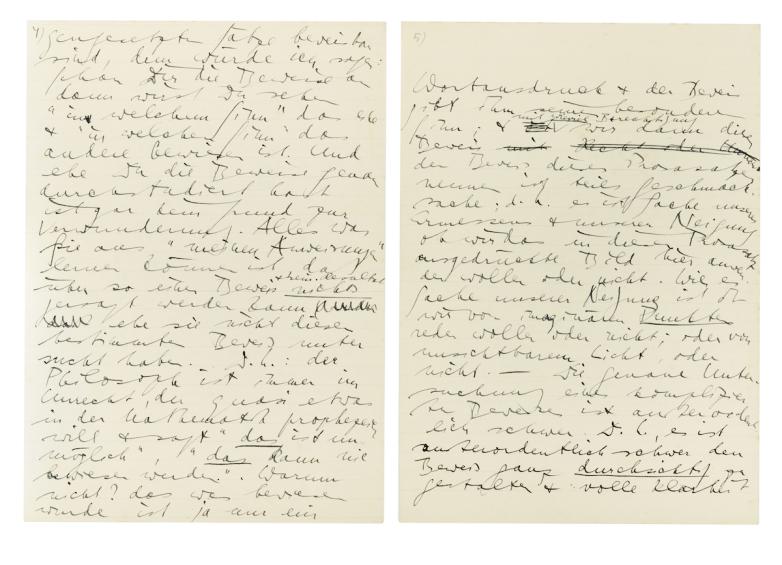 4)
gengesetzten Satze beweisbar
sind, dem würde ich sagen:
schau Dir die Beweise an
dann wirst Du sehen
"in welchem Sinn" das eine
& "in welchem Sinn" das
andere bewiesen ist. Und
ehe Du die Beweise genau
durchstudiert hast
ist gar kein Grund zur
Verwunderung. Alles was
Sie aus "meinen Anweisungen"
lernen können ist, daß
über so einen Beweis & sein Resultat nichts
gesagt werden kann
ehe sie nicht diesen
bestimmten Beweis unter
sucht haben. D.h.: der
Philosoph ist immer im
Unrecht, der quasi etwas
in der Mathematik prophezeien
will & sagt "das ist un
möglich", "das kann nie
bewiesen werden". Warum
nicht? das was bewiesen
wurde ist ja nur ein
5)
Wortausdruck & der Beweis
gibt ihm seinen besondern
Sinn; & mit wieviel Recht wir dann diesen
Beweis
den Beweis dieses Prosasatzes
nennen ist teils Geschmack-
sache; d.h. es ist Sache unseres
Ermessens & unserer Neigung
ob wir das in diesem Prosasatz
ausgedruckte Bild hier anwen
den wollen oder nicht. Wie es
Sache unserer Neigung ist ob
wir von imaginären Punkten
reden wollen oder nicht; oder von
unsichtbarem Licht, oder
nicht. — Die genaue Unter-
suchung eines komplizier
ten Beweises ist ausserordent
lich schwer. D.h., es ist
ausserordentlich schwer den
Beweis ganz durchsichtig zu
gestalten & volle Klarheit